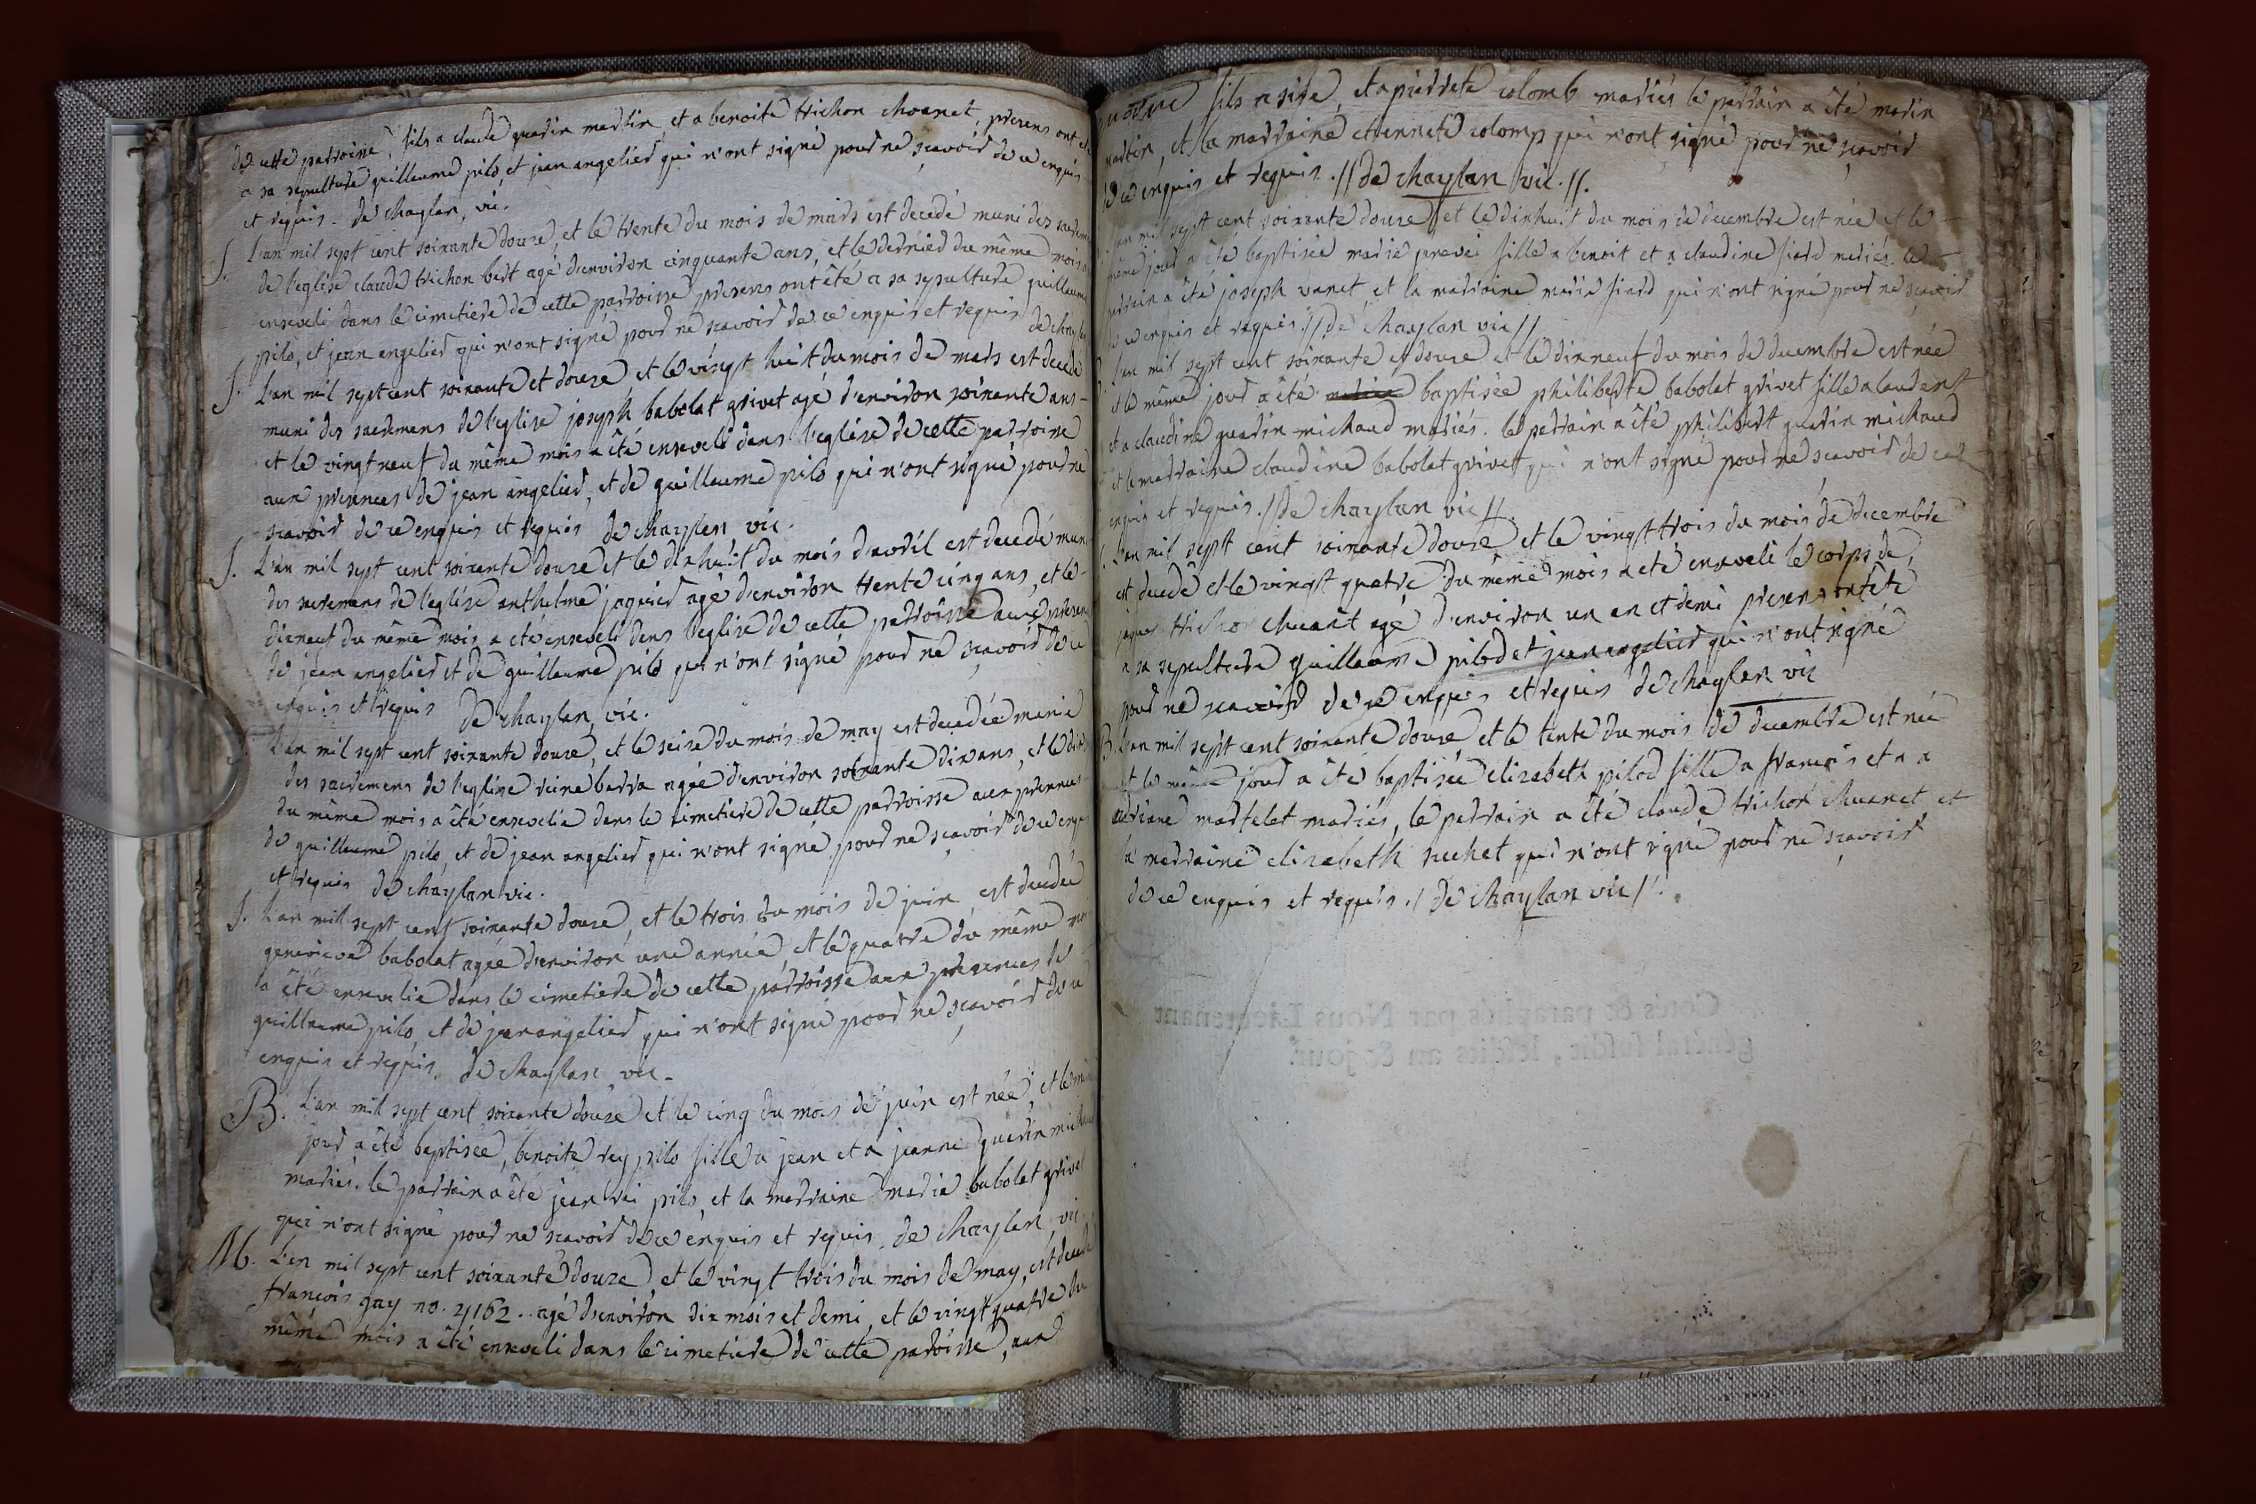 de cette parroisse, fils a claude guerin martin, et a benoite trichon choanet, presens ont été
a sa sepulture guillaume pilo, et jean angelier qui n'ont signé pour ne sçavoir de ce enquis
et requis. de chaylan, vic.
S. L'an mil sept cent soixante douze, et le trente du mois de mars est decedé muni des sacremens
de l'eglise claude trichon bert agé d'environ cinquante ans, et le dernier du même mois a
enseveli dans le cimetiere de cette parroisse presens ont été a sa sepulture guillaume
pilo, et jean angelier qui n'ont signé pour ne scavoir de ce enquis et requis de chaylan
S. L'an mil sept cent soixante et douze et le vingt huit du mois de mars est decedé
muni des sacremens de l'eglise joseph babolat grivet agé d'environ soixante ans
et le vingt neuf du même mois a été enseveli dans l'eglise de cette parroisse
aux presences de jean angelier, et de guillaume pilo qui n'ont signé pour ne
scavoir de ce enquis et requis de chaylan vic.
S. L'an mil sept cent soixante douze et le dixhuit du mois d'avril est decedé muni
des sacremens de l'eglise anthelme jaquier agé d'environ trente cinq ans, et le
dixneuf du même mois a été enseveli dans l'eglise de cette parroisse aux presences
de jean angelier et de guillaume pilo qui n'ont signé pour ne sçavoir de ce
enquis et requis de chaylan, vic.
L'an mil sept cent soixante douze, et le seize du mois de may est decedée munie
des sacremens de l'eglise reine barra agée d'environ soixante dix ans, et le
du même mois a été ensevelie dans le cimetiere de cette parroisse aux presences
de guillaume pilo, et de jean angelier qui n'ont signé pour ne sçavoir de ce enquis
et requis de chaylan vic.
S. L'an mil sept cent soixante douze, et le trois du mois de juin est decedée
genevieve babolat agée d'environ une année, et le quatre du même mois
a été ensevelie dans le cimetiere de cette parroisse aux presences de
guillaume pilo, et de jean angelier qui n'ont signé pour ne sçavoir de ce
enquis et requis. de chaylan, vic.
B. L'an mil sept cent soixante douze et le cinq du mois de juin est née, et le même
jour a été baptisée, benoite rey pilo fille a jean et a jeanne guerin michaud
mariés. le parrain a été jean rei pilo, et la marraine marie babolat grivet
qui n'ont signé pour ne scavoir de ce enquis et requis. de chaylan, vic
M. L'an mil sept cent soixante douze, et le vingt trois du mois de may, est decedé
francois gay no. 4162.. agé d'environ dix mois et demi, et le vingt quatre du
même mois a été enseveli dans le cimetiere de cette paroisse, aux
fils a sire, et a pierrete colomb mariés le parrain a été
martin, et la marraine etiennete colomp qui n'ont signé pour ne sçavoir
de ce enquis et requis. // de chaylan vic. //.
L'an mil sept cent soixante douze et le dixhuit du mois de decembre est née et le
même jour a été baptisée marie fille a benoit et a claudine siard mariés. le
parrain a été joseph vanet et la marraine marie siard qui n'ont signé pour ne scavoir
de ce enquis et requis. // de chaylan vic //
L'an mil sept cent soixante et douze et le dixneuf du mois de decembre est née
et le même jour a été baptisée philiberte babolat grivet fille a laudent
et a claudine guerin michaud mariés. le parrain a été philibert guerin michaud
et la marraine claudine babolat grivet qui n'ont signé pour ne scavoir de ce
enquis et requis. // de chaylan vic //.
S. L'an mil sept cent soixante douze et le vingt trois du mois de decembre
est decedé et le vingt quatre du même mois a été enseveli le corps de
trichon chuant agé d'environ un an et demi presens ont été
a sa sepulture guillaume pilod et jean angelier qui n'ont signé
pour ne scavoir de ce enquis et requis de chaylan vic
B. L'an mil sept cent soixante douze et le tente du mois de decembre est née
et le même jour a été baptisée elizabeth pilod fille a francois et a a
adriane martelet mariés, le parrain a été claude trichon chuanet et
la marraine elizabeth suchet qui n'ont signé pour ne sçavoir
de ce enquis et requis. / de chaylan vic /.
Cotés & paraphés par Nous Lieutenant
général susdit, lesdits an & jour.